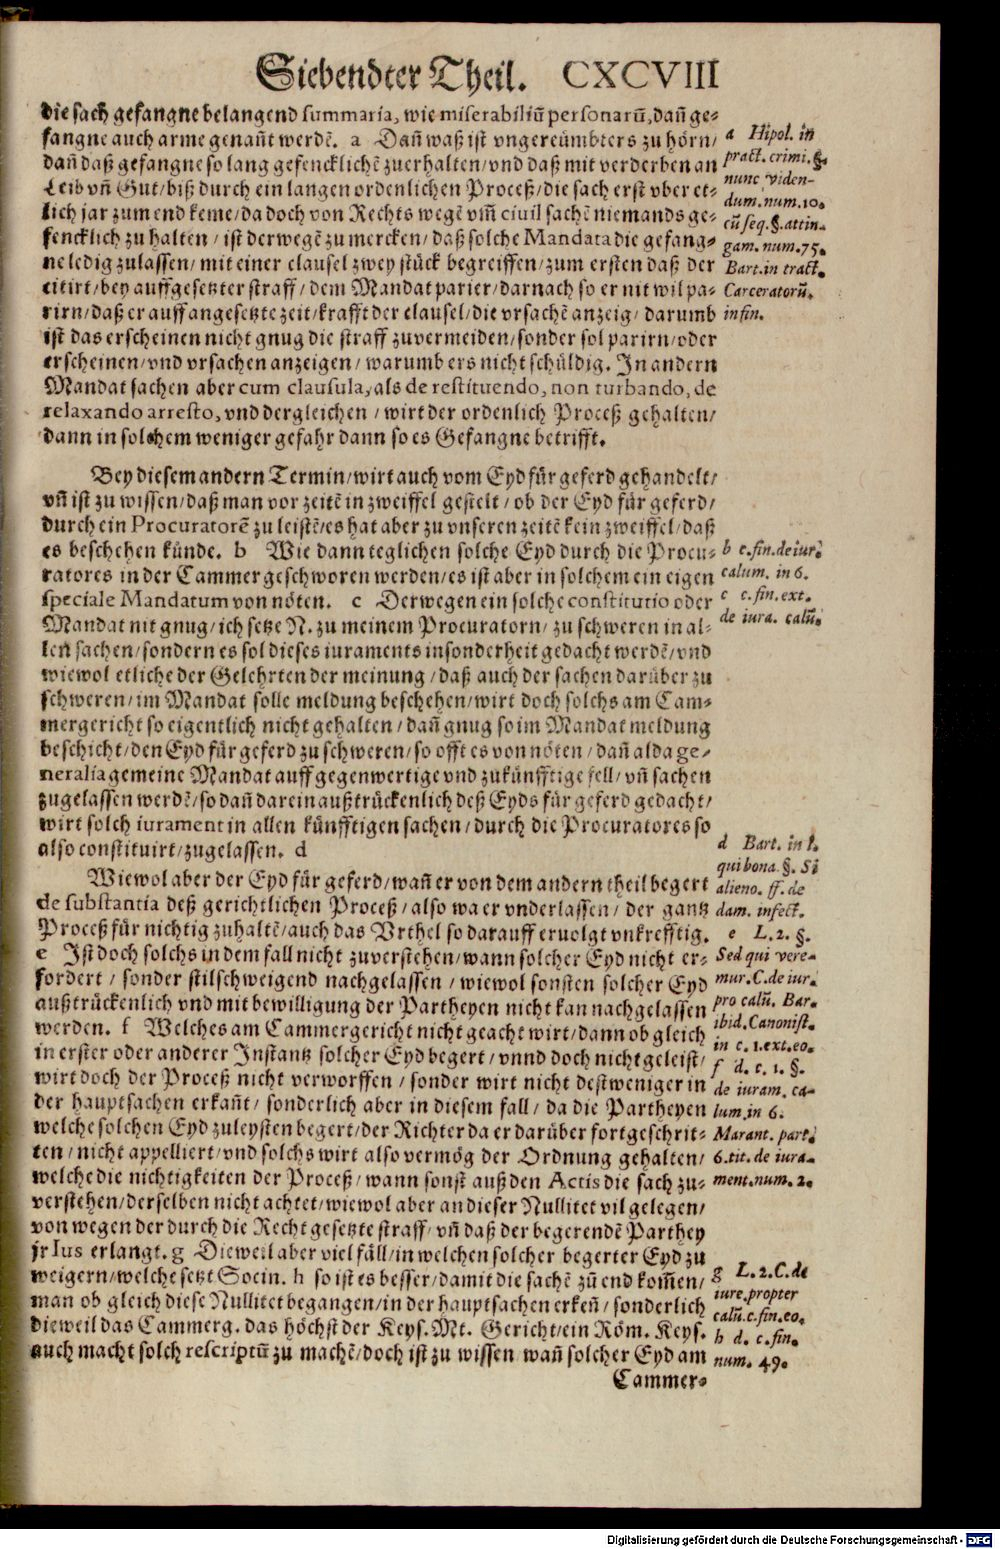 Siebendter Theil. CXCVIII
die sach gefangne belangend summaria, wie miserabiliũ personarũ, dañ ge-
fangne auch arme genañt werdē. a Dañ waß ist vngereümbters zu hörn/
dañ daß gefangne so lang gefencklichē zuerhalten/ vnd daß mit verderben an
Leib vñ Gut/ biß durch ein langen ordenlichen Proceß/ die sach erst vber et-
lich jar zum end keme/ da doch von Rechts wegē vm̃ civil sachē niemands ge-
fencklich zu halten/ ist derwegē zu mercken/ daß solche Mandata die gefang-
ne ledig zulassen/ mit einer clausel zwey stück begreiffen/ zum ersten daß der
citirt/ bey auffgesetzter straff/ dem Mandat parier/ darnach so er nit wil pa-
rirn/ daß er auff angesetzte zeit/ krafft der clausel/ die vrsachē anzeig/ darumb
ist das erscheinen nicht gnug die straff zuvermeiden/ sonder sol parirn/ oder
erscheinen/ vnd vrsachen anzeigen/ warumb ers nicht schüldig. In andern
Mandat sachen aber cum clausula, als de restituendo, non turbando, de
relaxando arresto, vnd dergleichen/ wirt der ordenlich Proceß gehalten/
dann in solchem weniger gefahr dann so es Gefangne betrifft.
a Hipol. in
pract. crimi. §.
nunc viden-
dum. num. 10.
cũ seq. §. attin-
gam. num. 75.
Bart. in tract.
Carceratorũ.
in fin.
Bey diesem andern Termin/ wirt auch vom Eyd für geferd gehandelt/
vñ ist zu wissen/ daß man vor zeitē in zweiffel gestelt/ ob der Eyd für geferd/
durch ein Procuratorē zu leistē/ es hat aber zu vnseren zeitē kein zweiffel/ daß
es beschehen künde. b Wie dann teglichen solche Eyd durch die Procu-
ratores in der Cammer geschworen werden/ es ist aber in solchem ein eigen
speciale Mandatum von nöten. c Derwegen ein solche constitutio oder
Mandat nit gnug/ ich setze N. zu meinem Procuratorn/ zu schweren in al-
len sachen/ sondern es sol dieses iuraments insonderheit gedacht werdē/ vnd
wiewol etliche der Gelehrten der meinung/ daß auch der sachen darüber zu
schweren/ im Mandat solle meldung beschehen/ wirt doch solchs am Cam-
mergericht so eigentlich nicht gehalten/ dañ gnug so im Mandat meldung
beschicht/ den Eyd für geferd zu schweren/ so offt es von nöten/ dañ alda ge-
neralia gemeine Mandat auff gegenwertige vnd zukünfftige fell/ vñ sachen
zugelassen werdē/ so dañ darein außtrückenlich deß Eyds für geferd gedacht/
wirt solch iurament in allen künfftigen sachen/ durch die Procuratores so
also constituirt/ zugelassen. d
b c. fin. de iur.
calum. in 6.
c c. fin. ext.
de iura. calũ.
Wiewol aber der Eyd für geferd/ wañ er von dem andern theil begert
de substantia deß gerichtlichen Proceß/ also wa er vnderlassen/ der gantz
Proceß für nichtig zuhaltē/ auch das Vrthel so darauff ervolgt vnkrefftig.
e Ist doch solchs in dem fall nicht zuverstehen/ wann solcher Eyd nicht er-
fordert/ sonder stilschweigend nachgelassen/ wiewol sonsten solcher Eyd
außtrückenlich vnd mit bewilligung der Partheyen nicht kan nachgelassen
werden. f Welches am Cammergericht nicht geacht wirt/ dann ob gleich
in erster oder anderer Instantz solcher Eyd begert/ vnnd doch nicht geleist/
wirt doch der Proceß nicht verworffen/ sonder wirt nicht destweniger in
der hauptsachen erkañt/ sonderlich aber in diesem fall/ da die Partheyen
welche solchen Eyd zuleysten begert/ der Richter da er darüber fortgeschrit-
ten/ nicht appelliert/ vnd solchs wirt also vermög der Ordnung gehalten/
welche die nichtigkeiten der Proceß/ wann sonst auß den Actis die sach zu-
verstehen/ derselben nicht achtet/ wiewol aber an dieser Nullitet vil gelegen/
von wegen der durch die Recht gesetzte straff/ vñ daß der begerendē Parthey
jr Ius erlangt. g Dieweil aber viel fäll/ in welchen solcher begerter Eyd zu
weigern/ welche setzt Socin. h so ist es besser/ damit die sachē zũ end kom̃en/
man ob gleich diese Nullitet begangen/ in der hauptsachen erkeñ/ sonderlich
dieweil das Cammerg. das höchst der Keys. Mt. Gericht/ ein Röm. Keys.
auch macht solch rescriptũ zu machē/ doch ist zu wissen wañ solcher Eyd am
Cammer-
d Bart. in l.
qui bona §. Si
alieno. ff. de
dam. infect.
e L. 2. §.
Sed qui vere-
mur. C. de iur.
pro calũ. Bar.
ibid. Canonist.
in c. 1. ext. eo.
f d. c. 1. §.
de iuram. ca-
lum. in 6.
Marant. part.
6. tit. de iura-
ment. num. 2.
g L. 2. C. de
iure. propter
calũ. c. fin. eo.
h d. c. fin.
num. 49.
Digitalisierung gefördert durch die Deutsche Forschungsgemeinschaft - DFG